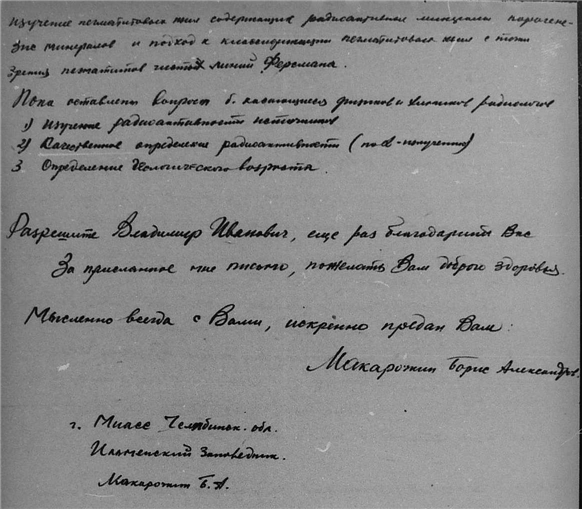 изучение пегматитовых жил содержащих радиоактивные минералы парагене-
зис минералов и подход к классификации пегматитовых жил с точки
зрения пегматитов чистой линии Ферсмана.
Пока оставлены вопросы б. касающиеся физиков и химиков радиологов
1) изучение радиоактивности источников
2) Качественное определение радиоактивности (по α-излучению)
3 Определение Геологического возраста.
Разрешите Владимир Иванович, еще раз благодарить Вас
За присланное мне письмо, пожелать Вам доброго здоровья.
Мысленно всегда с Вами, искренно предан Вам:
Макарожин Борис Александров.
г. Миасс Челябинск. обл.
Ильменский Заповедник.
Макарожин Б. А.